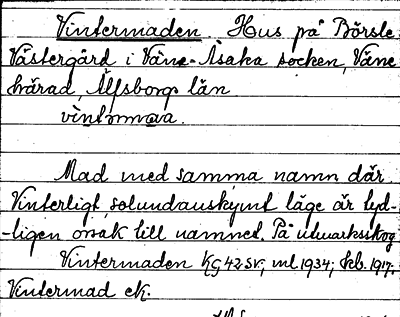 Vintermaden Hus på Börsle
Västergård i Väne-Åsaka socken, Väne
härad, Älfsborgs län
Mad med samma namn där
Vinterligt, solundanskymt läge är tyd-
-ligen orsak till namnet. På utmarksskog
Vintermaden KG 42 SV; ml 1934; kb. 1917.
Vintermad ek.